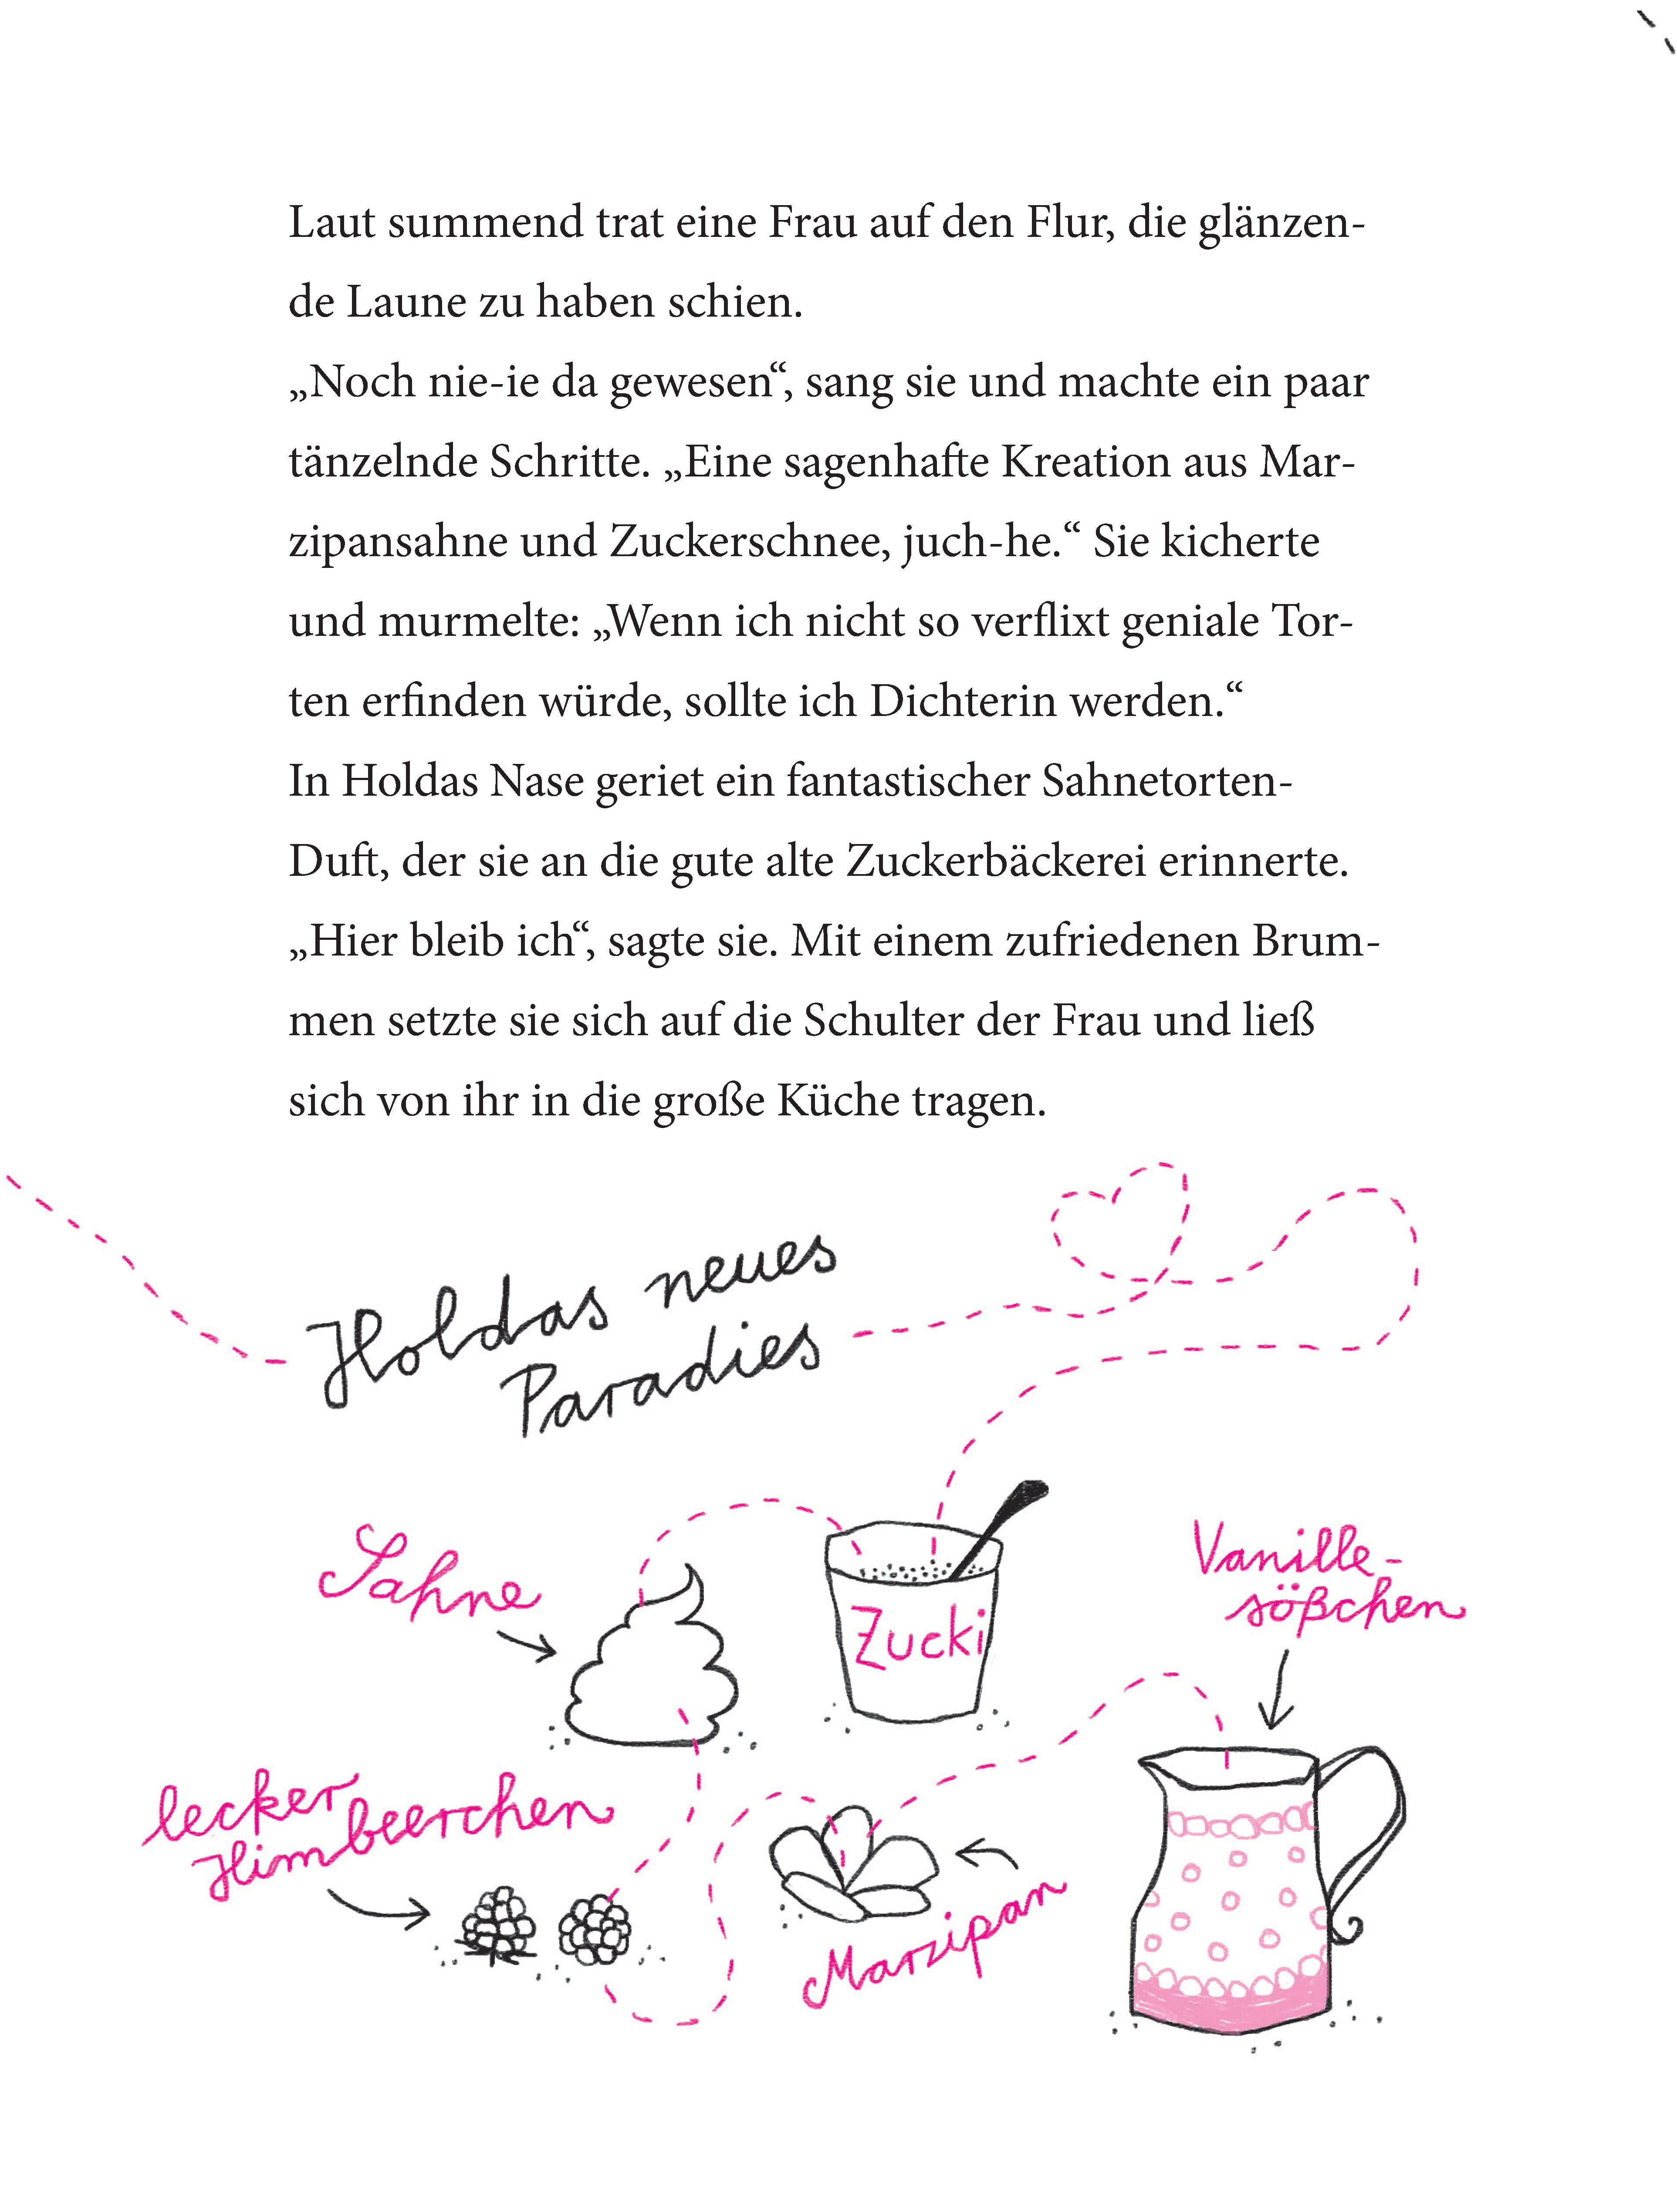 Laut summend trat eine Frau auf den Flur, die glänzen-
de Laune zu haben schien.
„Noch nie-ie da gewesen“, sang sie und machte ein paar
tänzelnde Schritte. „Eine sagenhafte Kreation aus Mar-
zipansahne und Zuckerschnee, juch-he.“ Sie kicherte
und murmelte: „Wenn ich nicht so verflixt geniale Tor-
ten erfinden würde, sollte ich Dichterin werden.“
In Holdas Nase geriet ein fantastischer Sahnetorten-
Duft, der sie an die gute alte Zuckerbäckerei erinnerte.
„Hier bleib ich“, sagte sie. Mit einem zufriedenen Brum-
men setzte sie sich auf die Schulter der Frau und ließ
sich von ihr in die große Küche tragen.
Holdas neues
Paradies
Sahne
Zucki
Vanille-
sößchen
lecker
Himbeerchen
Marzipan